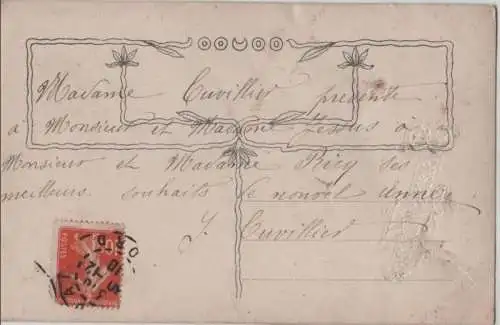 Madame Cuvillier présente
à Monsieur et Madame Lessus à
Monsieur et Madame Bicq ses
meilleurs souhaits de nouvel année
J Cuvillier
POSTES